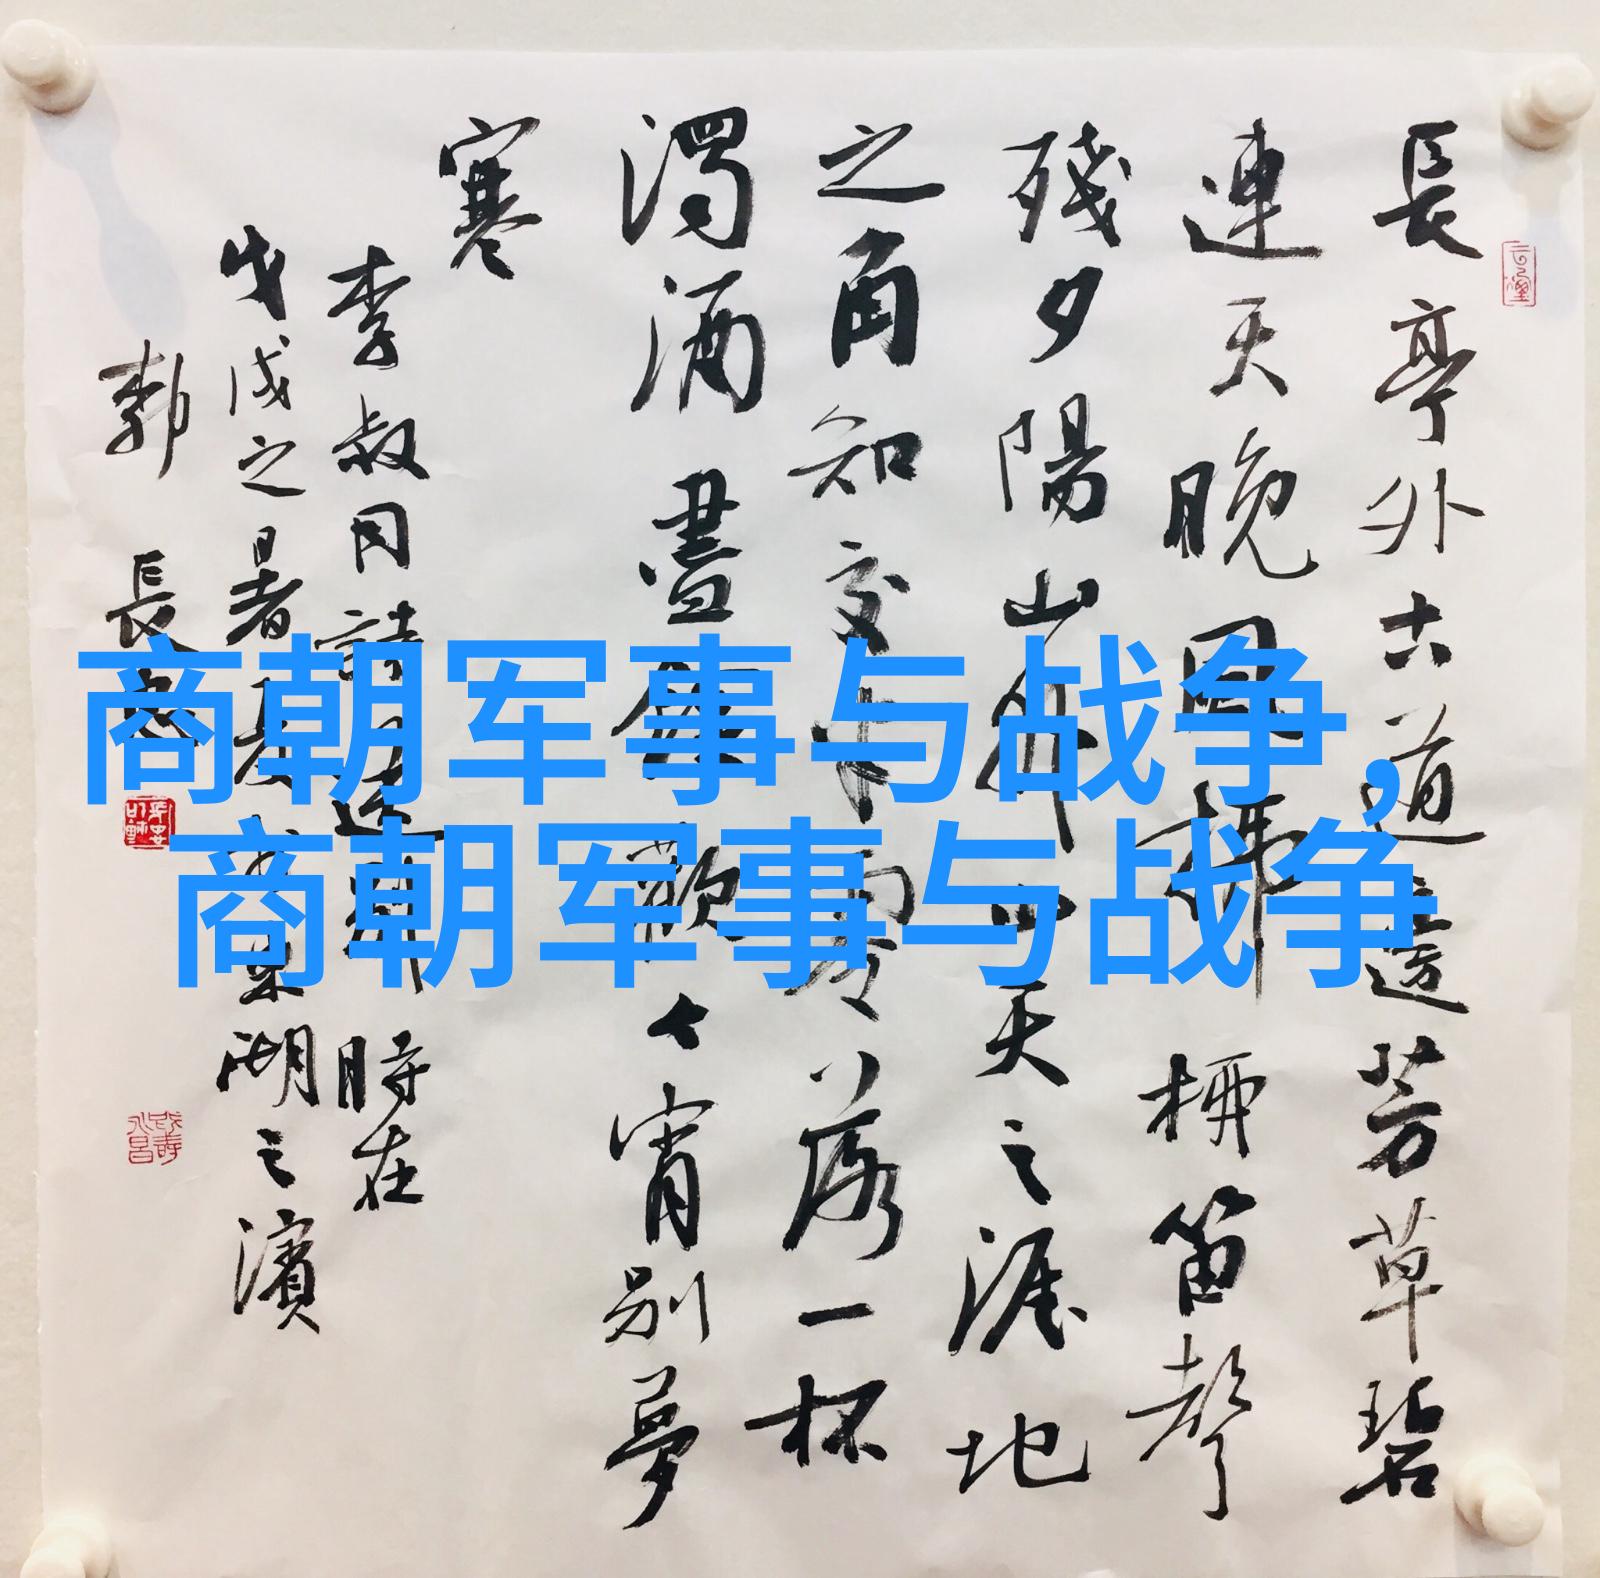 商朝军事与战争,
商朝军事与战争
長亭外古道邊芳草碧
連天晚風拂柳笛聲
殘夕陽山外山天之涯地
之角知交半零落一杯
濁酒盡餘歡今宵別夢
寒
李叔同詩送別時在
戊戌之暑月湖之濱
長